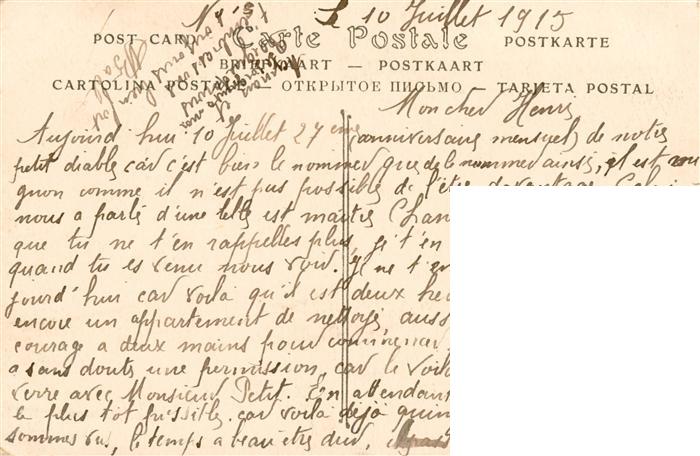 Le 10 Juillet 1915
Carte Postale
POST CARD
POSTKARTE
BRIEFKAART — POSTKAART
CARTOLINA POSTALE — ОТКРЫТОЕ ПИСЬМО — TARJETA POSTAL
Mon cher Henri
Aujourd'hui 10 Juillet 27eme (anniversaire mensuel) de notre
petit diable car c'est bien le nommer que de le nommer ainsi, il est mi
gnon comme il n'est pas possible de l'être davantage
nous a parlé d'une telle est
que tu ne t'en rappelles plus, je t'en
quand tu es venu nous voir. Je ne t'
jourd'hui car voilà qu'il est deux he
encore un appartement de nettoyé, auss
courage a deux mains pour commencer
a sans doute une permission, car le voilà
verre avec Monsieur Petit. En attendan
le plus tôt possible, car voilà déjà quin
sommes vus, le temps a beau être dur,